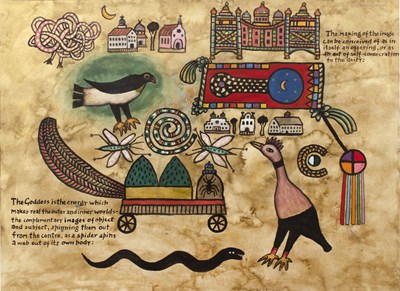 The making of the image
can be conceived of as in
itself an offering, or as
an act of self-consecration
to the deity:
The Goddess is the energy which
makes real the outer and inner worlds-
the complimentary images of object
and subject, spinning them out
from the centre, as a spider spins
a web out of its own body: